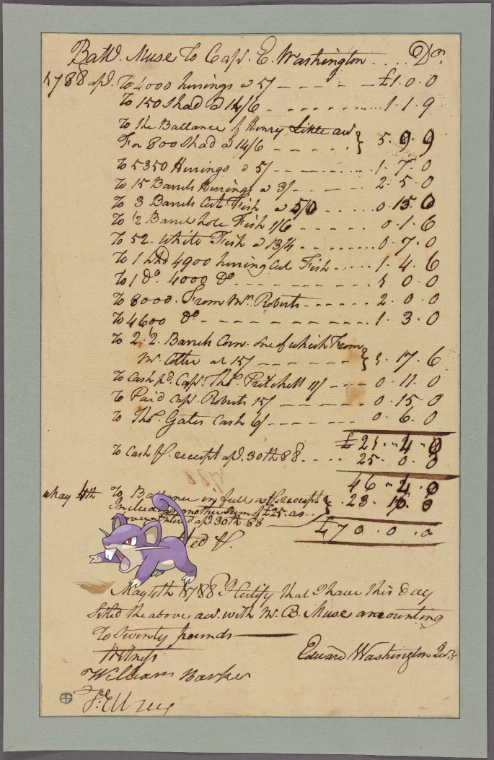 Batt. Muse To Capt. E. Washington .... Dr.
1788 apl. To 4000 herrings a 5/ - - - - £1. 0. 0
To 150 Shad a 14/6 - - - - 1. 1. 9
To the Ballance of Henry Little act
For 800 Shad a 14/6 - - - - } 5. 9. 9
To 5350 Herrings a 5/ - - - - 1. 7. 0
To 15 Barrels Herrings a 3/ - - - - 2. 5. 0
To 3 Barrels Cut Fish a 5/0 - - - - 0. 15. 0
To 1/2 Barrel hole Fish 1/6 0. 1. 6
To 52 White Fish a 13/4 0. 7. 0
To 1 hhd 4900 herring Cut Fish 1. 4. 6
To 1 do. 4000 do 1. 0. 0
To 8000 From Mr. Roberts 2. 0. 0
To 4600 do 1. 3. 0
To 2 1/2 Barrels Corn one of which From
Mr. at 15/ } 17. 6
To Cash pd. Capt. Thos. 11/ 0. 11. 0
To Paid Capt. Roberts 15/ 0. 15. 0
To Thos. Gates Cash 6/ 0. 6. 0
£21. 4. 0
To Cash pr. receipt apl. 30th 88 25. 0. 0
46. 4. 0
May 4th To Ballance in full as pr. receipt
another Sum of £25 as } 23. 16. 0
apl 30th 88
£70. 0. 0
May 4th 1788 I Certify that I have this day
Settled the above act. with Mr. B. Muse amounting
To Seventy pounds
Witness
Edward Washington
William